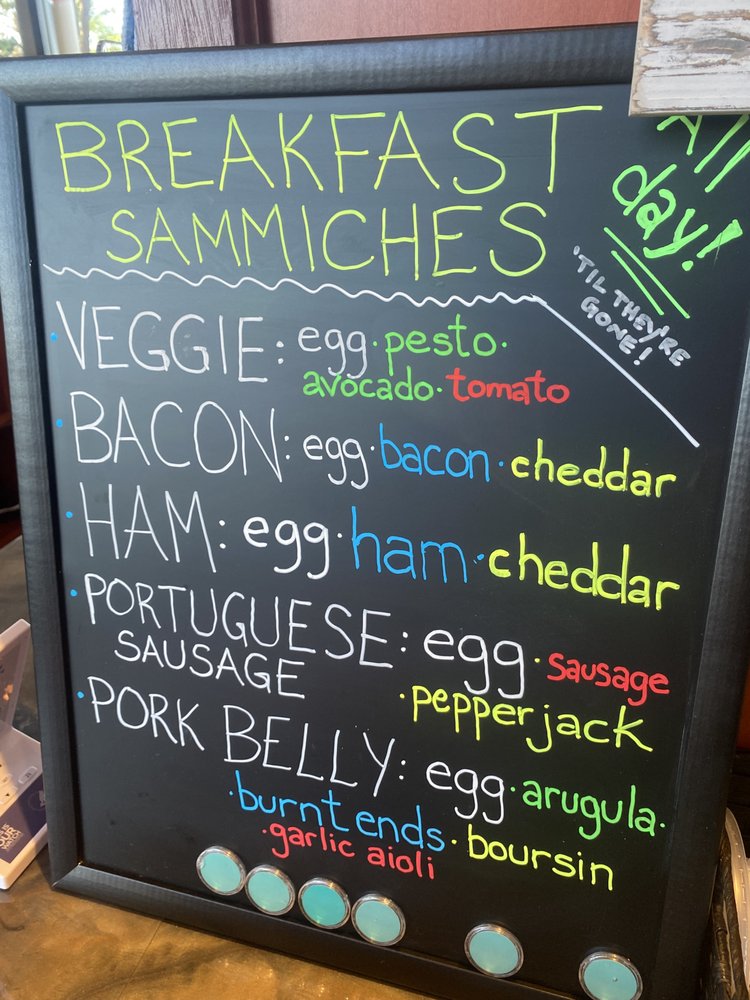 BREAKFAST
SAMMICHES
All
day!
'TIL THEY'RE
GONE!
VEGGIE: egg · pesto ·
avocado · tomato
BACON: egg · bacon · cheddar
HAM: egg · ham · cheddar
PORTUGUESE: egg · sausage
SAUSAGE
· pepperjack
PORK BELLY: egg · arugula ·
· burnt ends · boursin
· garlic aioli